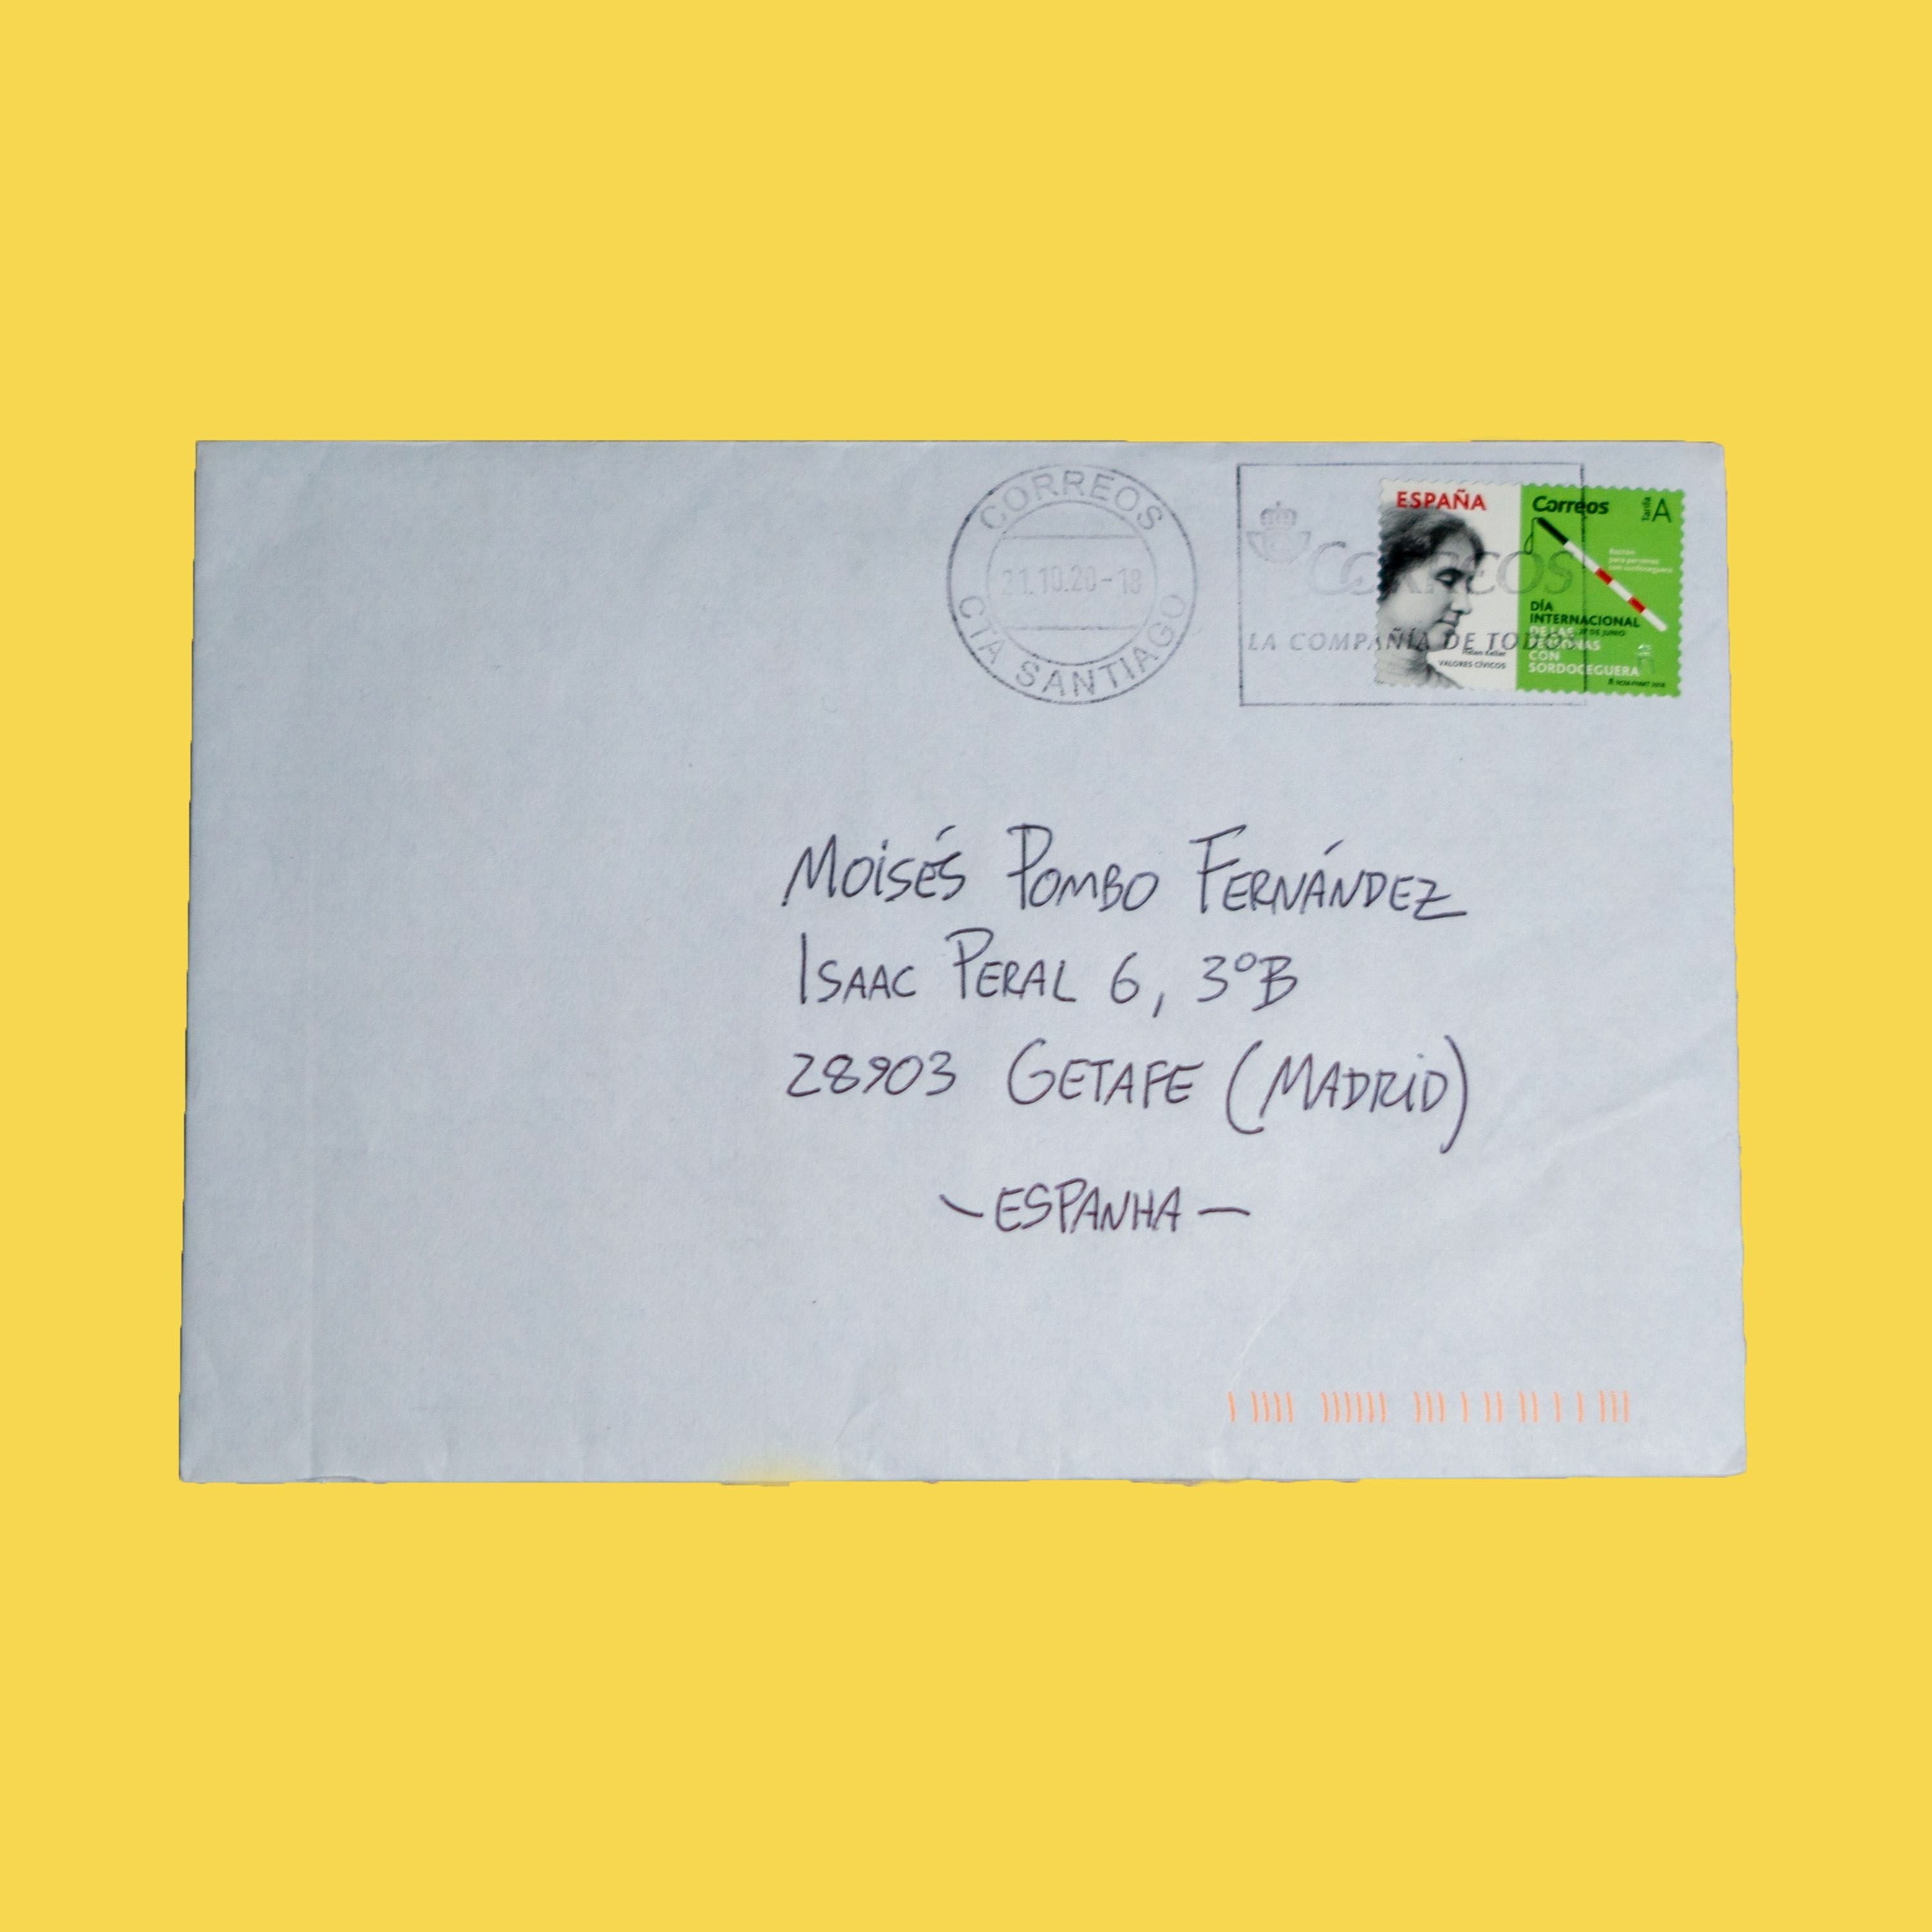 CORREOS
21.10.20-18
CTA SANTIAGO
CORREOS
LA COMPAÑÍA DE TODOS
ESPAÑA
Helen Keller
VALORES CÍVICOS
Correos
Tarifa A
Bastón
para personas
con sordoceguera
DÍA
INTERNACIONAL
DE LAS 27 DE JUNIO
PERSONAS
CON
SORDOCEGUERA
Moisés Pombo Fernández
Isaac Peral 6, 3ºB
28903 Getafe (Madrid)
- ESPANHA -